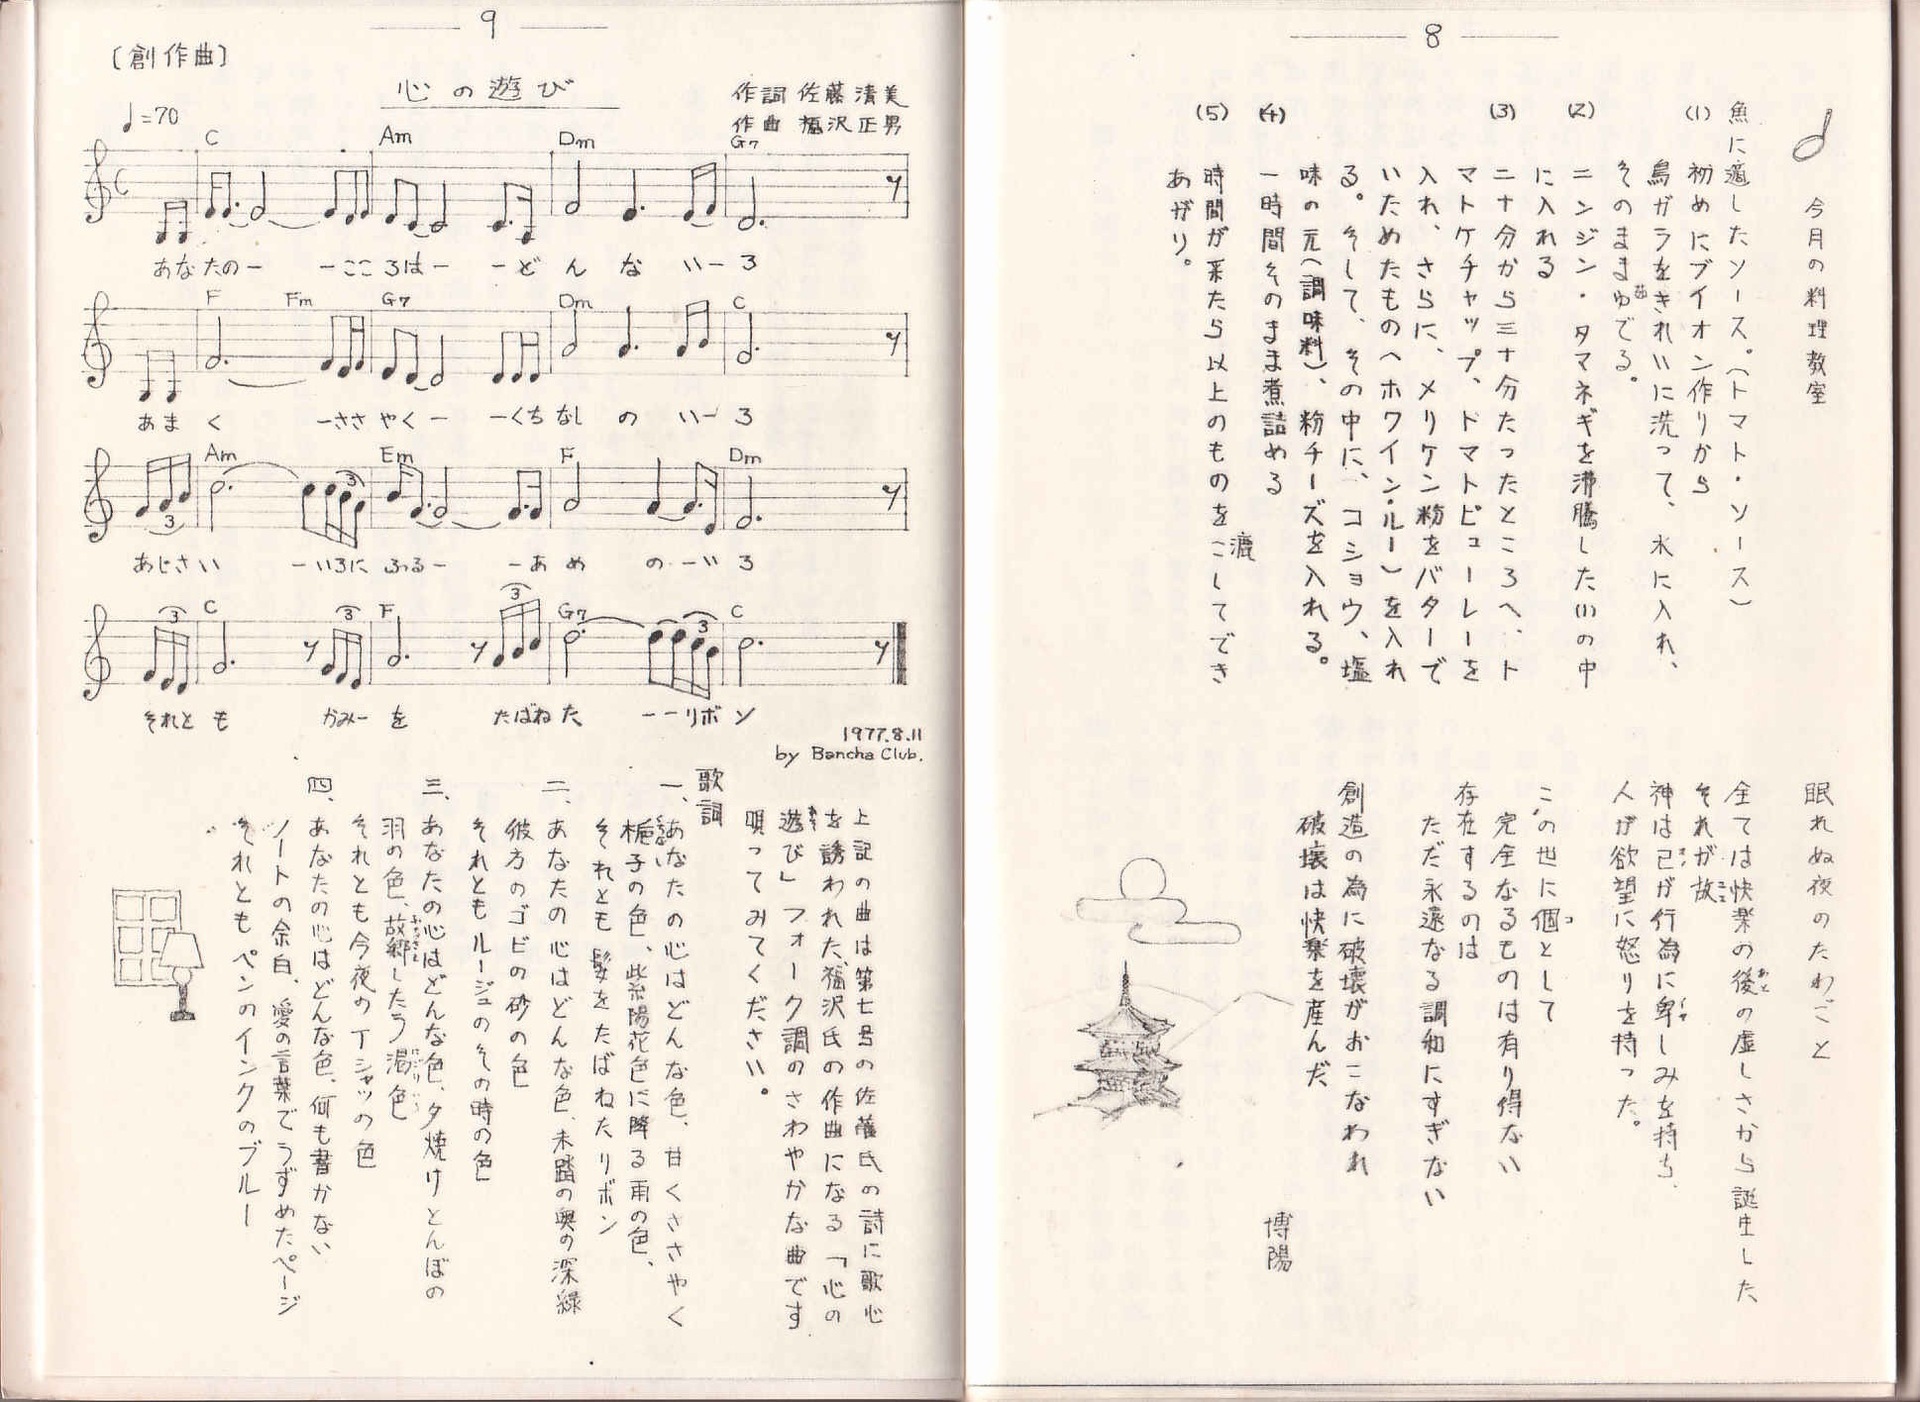 8
今月の料理教室
魚に適したソース。(トマト・ソース)
(1) 初めにブイオン作りから
鳥ガラをきれいに洗って、水に入れ、
そのままゆでる。
(2) ニンジン・タマネギを沸騰した(1)の中
に入れる
(3) 二十分から三十分たったところへ、ト
マトケチャップ、ドマトピューレーを
入れ、さらに、メリケン粉をバターで
いためたもの(ホワイン・ルー)を入れ
る。そして、その中に、コショウ、塩
味の元(調味料)、粉チーズを入れる。
(4) 一時間そのまま煮詰める
(5) 時間が来たら以上のものをこしてでき
漉
あがり。
眠れぬ夜のたわごと
全ては快楽の後の虚しさから誕生した
あと
それが故
ゆえ
神は己が行為に卑しみを持ち、
人が欲望に怒りを持った。
この世に個として
コ
完全なるものは有り得ない
存在するのは
ただ永遠なる調和にすぎない
創造の為に破壊がおこなわれ
破壊は快楽を産んだ
博陽
9
〔創作曲〕
心の遊び
作詞 佐藤清美
作曲 福沢正男
♩=70
C Am Dm G7
あなたの- -こころは- -どんないーろ
F Fm G7 Dm C
あまく -ささやく- -くちなしのいーろ
Am Em F Dm
あじさい -いろにふる- -あめの-いろ
C F G7 C
それとも かみーを たばねた --リボン
1977.8.11
by Bancha Club.
上記の曲は第七号の佐藤氏の詩に歌心
を誘われた福沢氏の作曲になる「心の
遊び」フォーク調のさわやかな曲です
あそ
唄ってみてください。
歌詞
一、あなたの心はどんな色、甘くささやく
梔子の色、紫陽花色に降る雨の色、
くちなし
それとも髪をたばねたリボン
二、あなたの心はどんな色、未踏の奥の深緑
彼方のゴビの砂の色
それともルージュのその時の色
三、あなたの心はどんな色、夕焼けとんぼの
羽の色、故郷したう濁色
ふるさと
にごりいろ
それとも今夜のTシャツの色
四、あなたの心はどんな色、何も書かない
ノートの余白、愛の言葉でうずめたページ
それともペンのインクのブルー